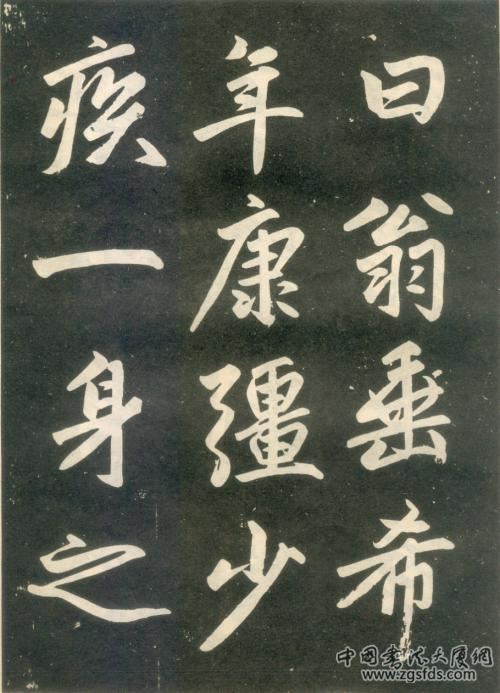 曰翁垂希
年康彊少
疾一身之
中国书法大厦网
www.zgsfds.com